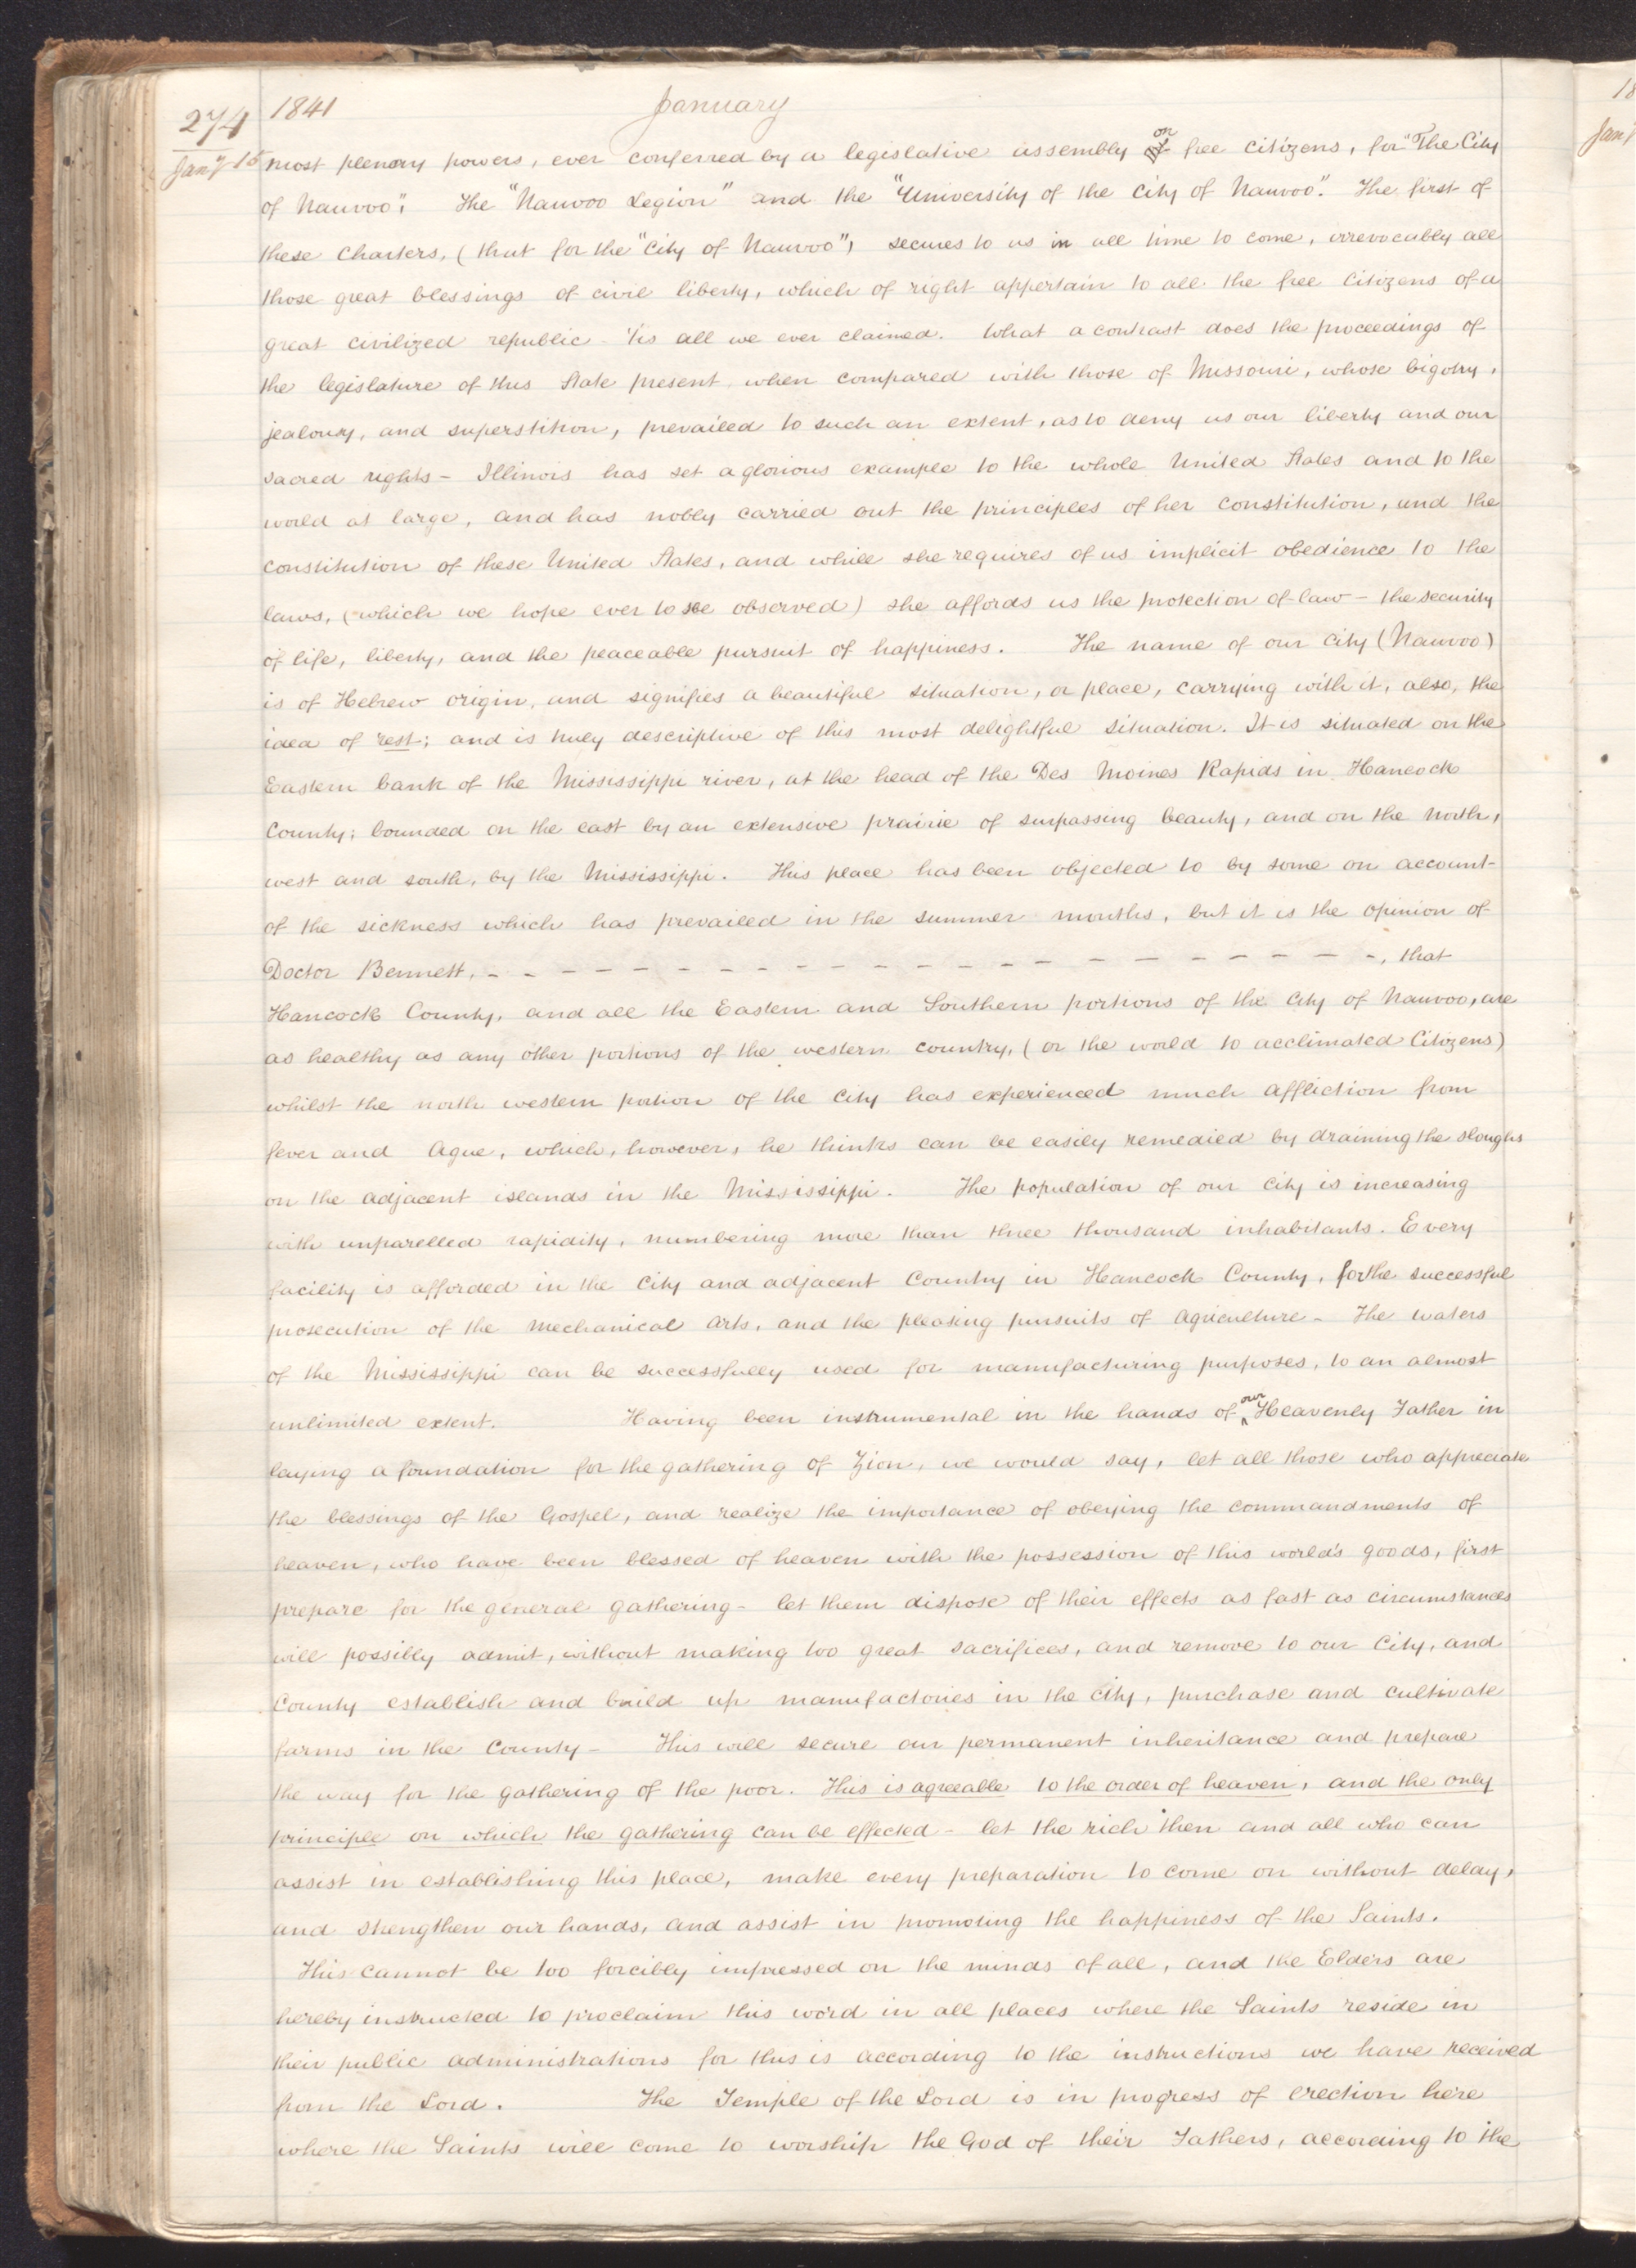 274 1841 January
Jany 15 most plenary powers, ever conferred by a legislative assembly of on free citizens, for "The City
of Nauvoo", The "Nauvoo Legion" and the "University of the City of Nauvoo". The first of
these Charters, (that for the "City of Nauvoo") secures to us in all time to come, irrevocably all
those great blessings of civil liberty, which of right appertain to all the free Citizens of a
great civilized republic - 'tis all we ever claimed. What a contrast does the proceedings of
the legislature of this State present when compared with those of Missouri, whose bigotry,
jealousy, and superstition, prevailed to such an extent, as to deny us our liberty and our
sacred rights - Illinois has set a glorious example to the whole United States and to the
world at large, and has nobly carried out the principles of her Constitution, and the
constitution of these United States, and while she requires of us implicit obedience to the
laws, (which we hope ever to see observed) she affords us the protection of law - the security
of life, liberty, and the peaceable pursuit of happiness. The name of our City (Nauvoo)
is of Hebrew origin, and signifies a beautiful situation, or place, carrying with it, also, the
idea of rest; and is truly descriptive of this most delightful situation. It is situated on the
Eastern bank of the Mississippi river, at the head of the Des Moines Rapids in Hancock
County; bounded on the east by an extensive prairie of surpassing beauty, and on the north,
west and south, by the Mississippi. This place has been objected to by some on account
of the sickness which has prevailed in the summer months, but it is the opinion of
Doctor Bennett, - - - - - - - - - - - - - - - - - - - - - - - -, that
Hancock County, and all the Eastern and Southern portions of the City of Nauvoo, are
as healthy as any other portions of the western country, (or the world to acclimated Citizens)
whilst the north western portion of the City has experienced much affliction from
fever and Ague, which, however, he thinks can be easily remedied by draining the sloughs
on the adjacent islands in the Mississippi. The population of our City is increasing
with unparelled rapidity, numbering more than three thousand inhabitants. Every
facility is afforded in the City and adjacent Country in Hancock County, for the successful
prosecution of the mechanical arts, and the pleasing pursuits of agriculture - The waters
of the Mississippi can be successfully used for manufacturing purposes, to an almost
unlimited extent. Having been instrumental in the hands of our Heavenly Father in
laying a foundation for the gathering of Zion, we would say, let all those who appreciate
the blessings of the Gospel, and realize the importance of obeying the commandments of
heaven, who have been blessed of heaven with the possession of this world's goods, first
prepare for the general gathering - let them dispose of their effects as fast as circumstances
will possibly admit, without making too great sacrifices, and remove to our City, and
County establish and build up manufactories in the City, purchase and cultivate
farms in the County - This will secure our permanent inheritance and prepare
the way for the gathering of the poor. This is agreeable to the order of heaven, and the only
principle on which the gathering can be effected - let the rich then and all who can
assist in establishing this place, make every preparation to come on without delay,
and strengthen our hands, and assist in promoting the happiness of the Saints.
This cannot be too forcibly impressed on the minds of all, and the Elders are
hereby instructed to proclaim this word in all places where the Saints reside in
their public administrations for this is according to the instructions we have received
from the Lord. The Temple of the Lord is in progress of erection here
where the Saints will come to worship the God of their Fathers, according to the
18
Jany